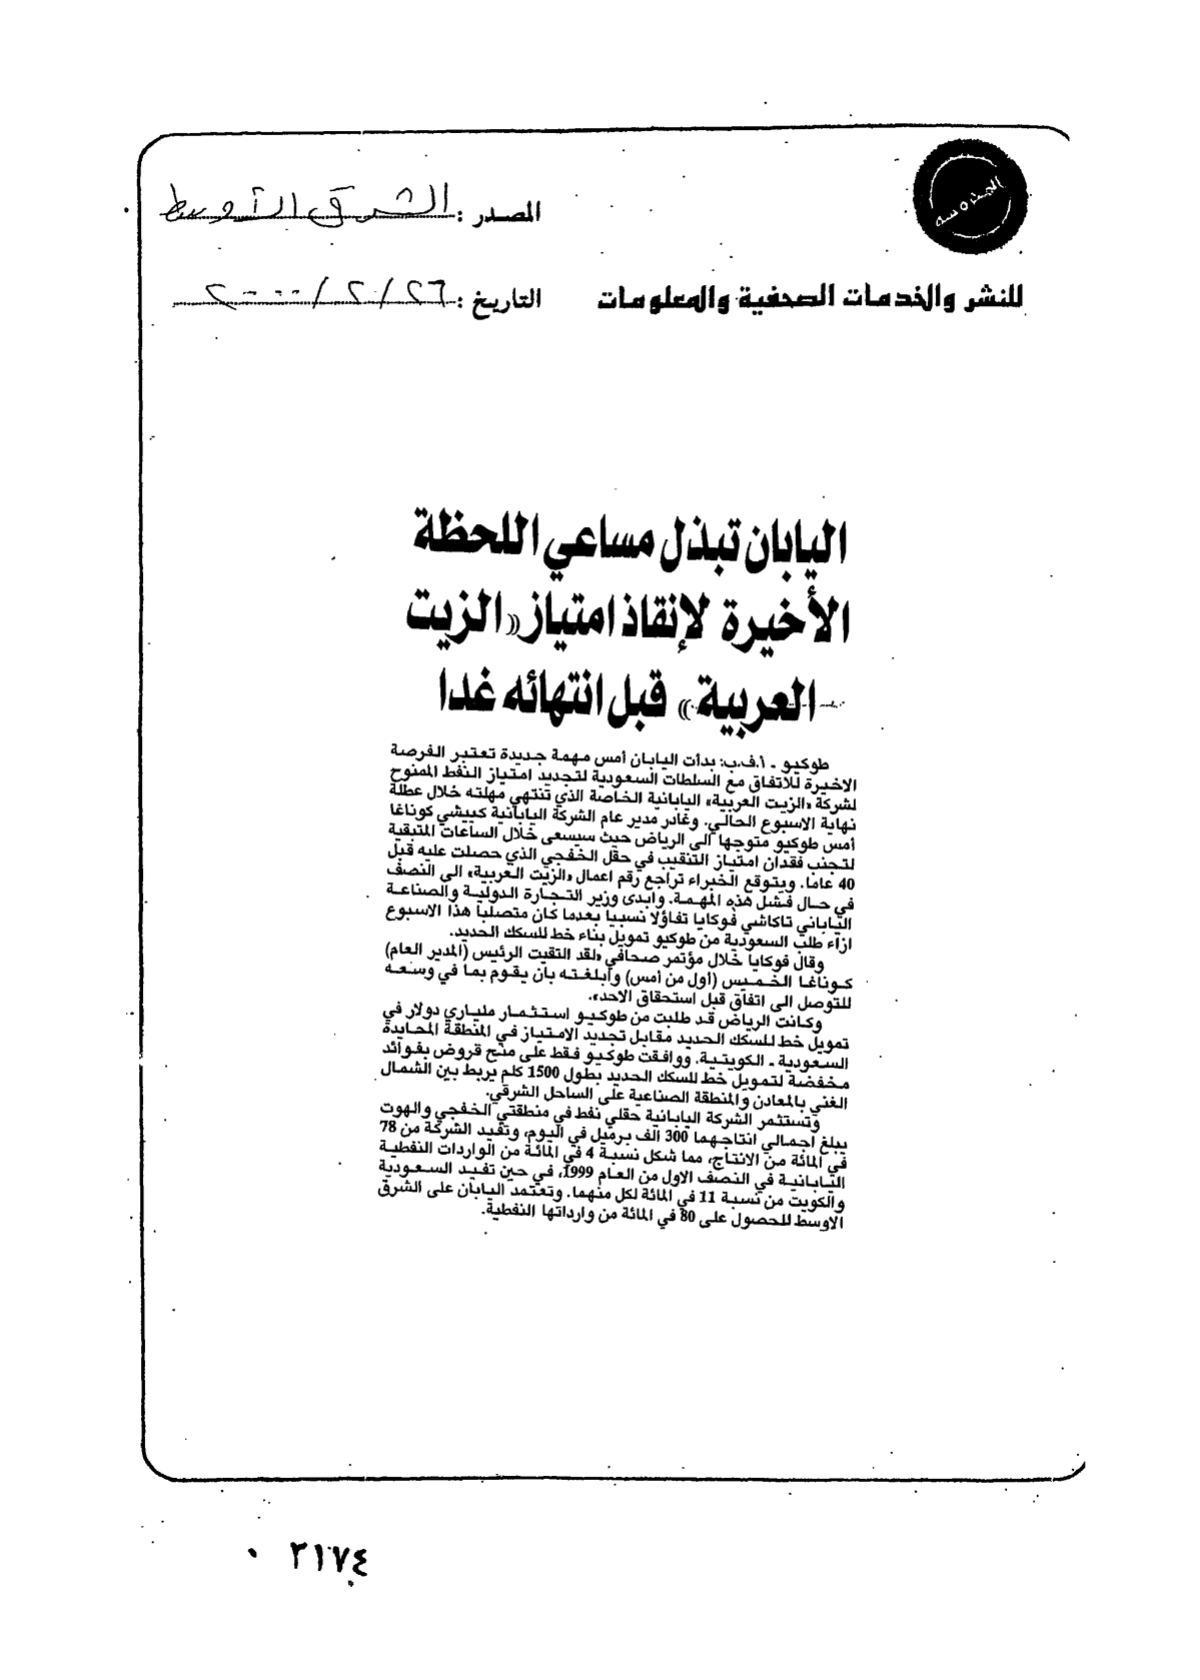 المحروسة
المصدر : الشرق الأوسط
للنشر والخدمات الصحفية والمعلومات
التاريخ : ٢٦/٢/٢٠٠٠
اليابان تبذل مساعي اللحظة
الأخيرة لإنقاذ امتياز «الزيت
العربية» قبل انتهائه غدا
طوكيو ـ ا.ف.ب: بدأت اليابان أمس مهمة جديدة تعتبر الفرصة
الاخيرة للاتفاق مع السلطات السعودية لتجديد امتياز النفط الممنوح
لشركة «الزيت العربية» اليابانية الخاصة الذي تنتهي مهلته خلال عطلة
نهاية الاسبوع الحالي. وغادر مدير عام الشركة اليابانية كييشي كوناغا
أمس طوكيو متوجها الى الرياض حيث سيسعى خلال الساعات المتبقية
لتجنب فقدان امتياز التنقيب في حقل الخفجي الذي حصلت عليه قبل
40 عاما. ويتوقع الخبراء تراجع رقم اعمال «الزيت العربية» الى النصف
في حال فشل هذه المهمة. وابدى وزير التجارة الدولية والصناعة
الياباني تاكاشي فوكايا تفاؤلا نسبيا بعدما كان متصلبا هذا الاسبوع
ازاء طلب السعودية من طوكيو تمويل بناء خط للسكك الحديد.
وقال فوكايا خلال مؤتمر صحافي «لقد التقيت الرئيس (المدير العام)
كوناغا الخميس (أول من أمس) وأبلغته بان يقوم بما في وسعه
للتوصل الى اتفاق قبل استحقاق الاحد».
وكانت الرياض قد طلبت من طوكيو استثمار ملياري دولار في
تمويل خط للسكك الحديد مقابل تجديد الامتياز في المنطقة المحايدة
السعودية ـ الكويتية. ووافقت طوكيو فقط على منح قروض بفوائد
مخفضة لتمويل خط للسكك الحديد بطول 1500 كلم يربط بين الشمال
الغني بالمعادن والمنطقة الصناعية على الساحل الشرقي.
وتستثمر الشركة اليابانية حقلي نفط في منطقتي الخفجي والهوت
يبلغ اجمالي انتاجهما 300 الف برميل في اليوم، وتفيد الشركة من 78
في المائة من الانتاج، مما شكل نسبة 4 في المائة من الواردات النفطية
اليابانية في النصف الاول من العام 1999، في حين تفيد السعودية
والكويت من نسبة 11 في المائة لكل منهما. وتعتمد اليابان على الشرق
الاوسط للحصول على 80 في المائة من وارداتها النفطية.
٠ ٢١٧٤